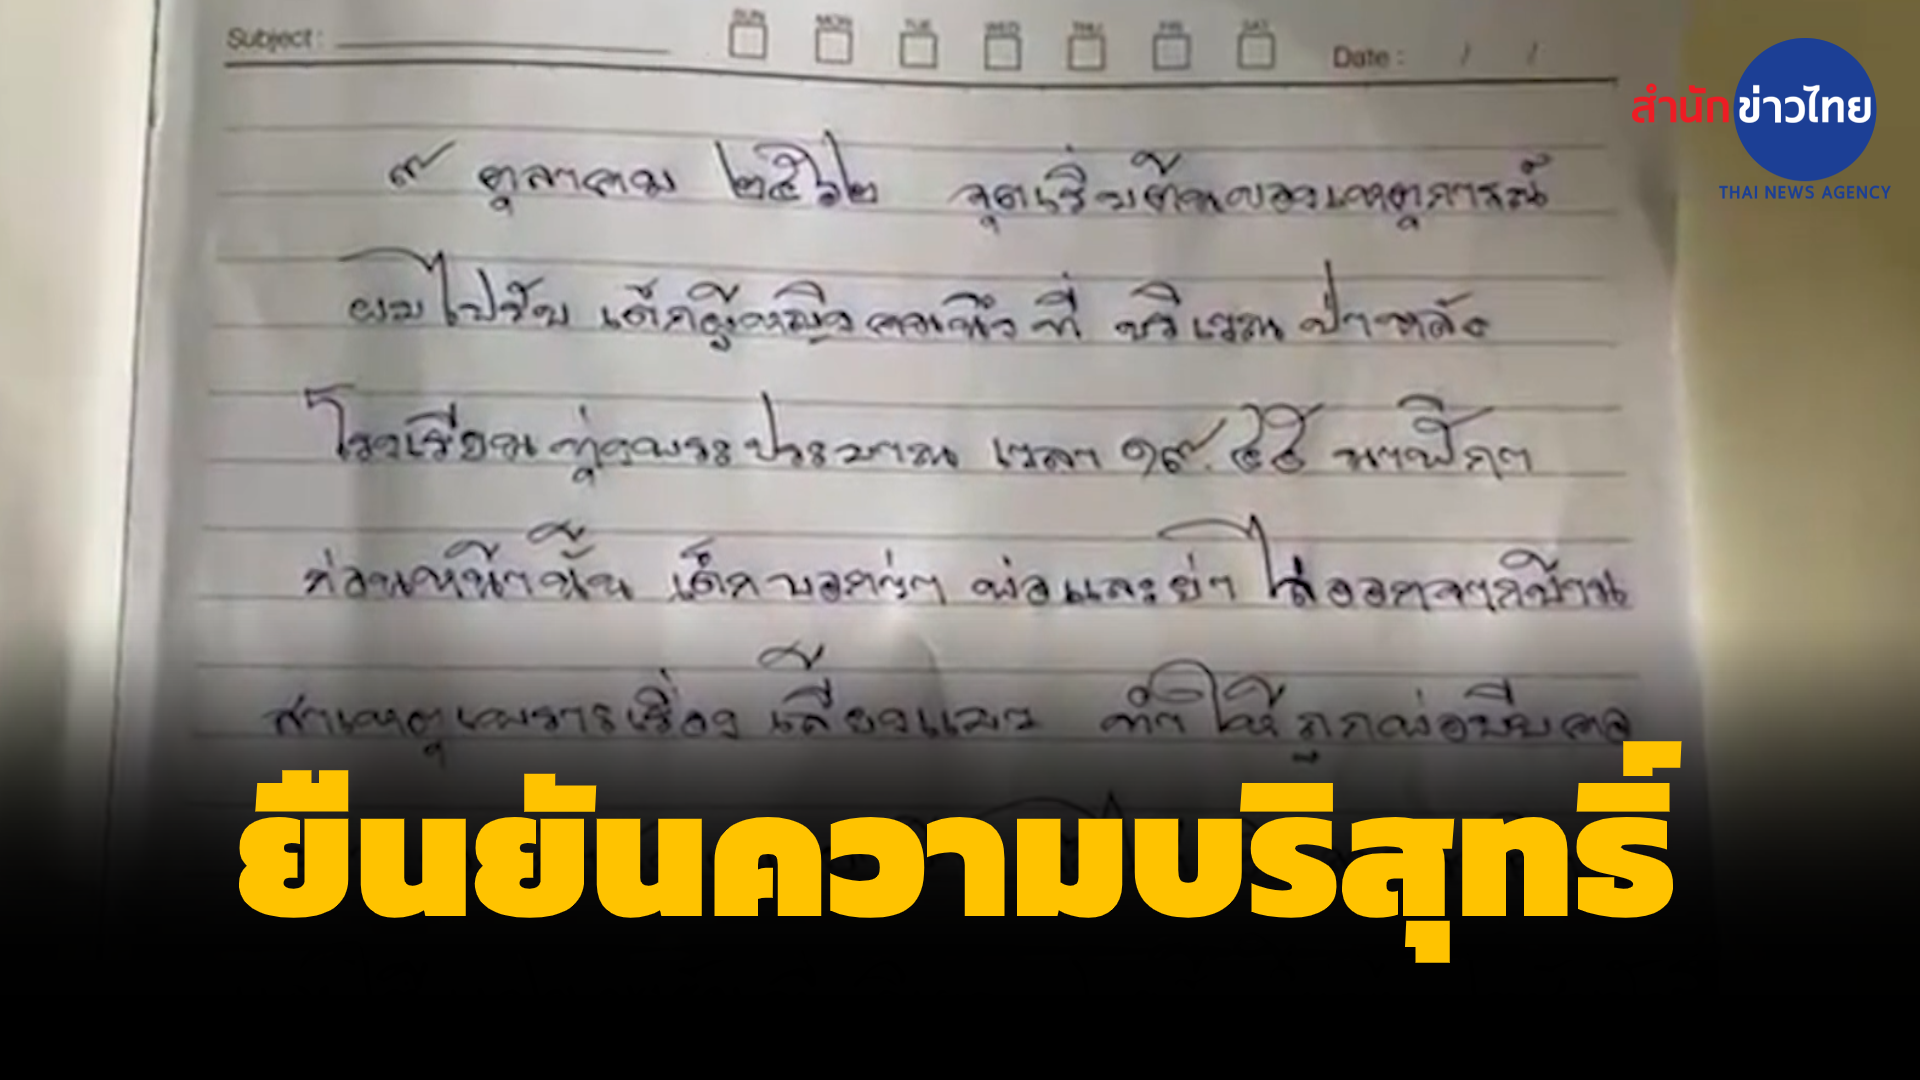 Subject : SUN MON TUE WED THU FRI SAT Date : / /
สำนักข่าวไทย
THAI NEWS AGENCY
๙ ตุลาคม ๒๕๖๒ จุดเริ่มต้นของเหตุการณ์
ผมไปรับ เด็กผู้หญิงคนนึงที่ บริเวณ ป่าหลัง
โรงเรียน ทุ่งพระ ประมาณ เวลา ๑๙.๔๕ นาฬิกา
ก่อนหน้านั้น เด็กบอกว่า พ่อและย่า ไล่ออกจากบ้าน
สาเหตุเพราะเรื่อง เลี้ยงแมว ทำให้ถูกพ่อบีบคอ
ยืนยันความบริสุทธิ์